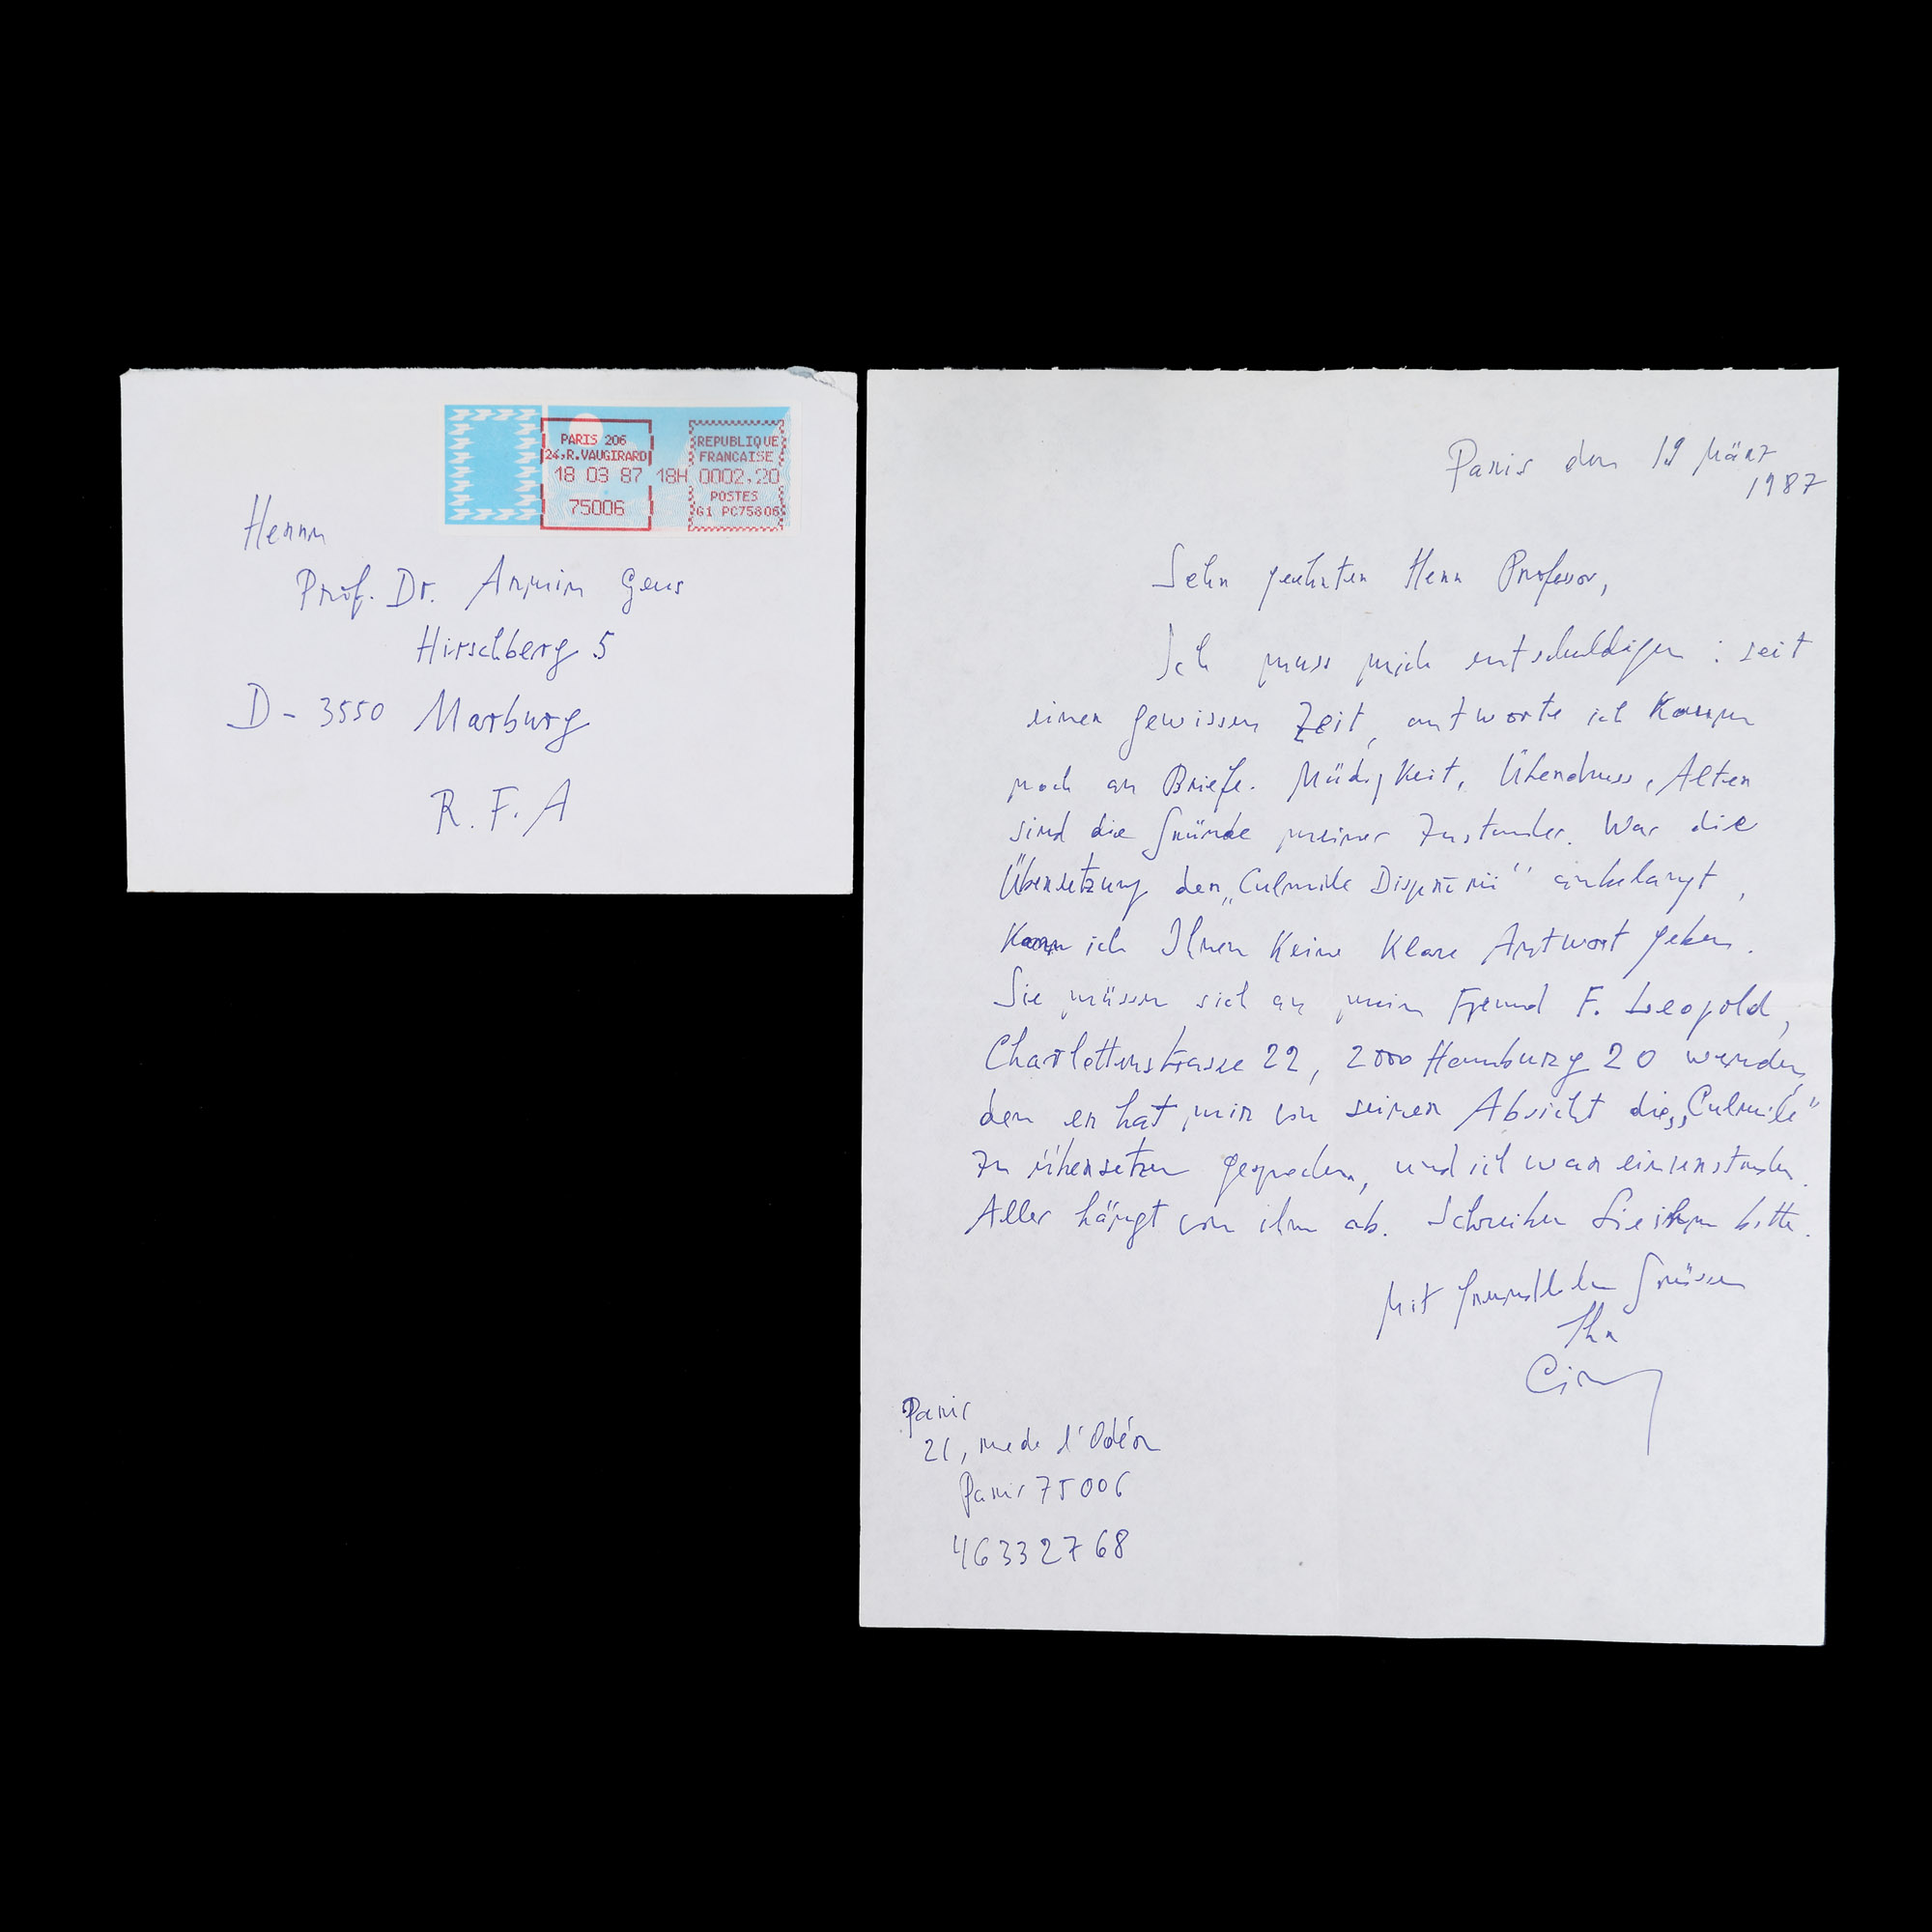 PARIS 206
24,R.VAUGIRARD
18 03 87 18H
75006
REPUBLIQUE
FRANCAISE
0002,20
POSTES
G1 PC75806
Herrn
Prof. Dr. Armin Geus
Hirschberg 5
D - 3550 Marburg
R.F.A
Paris den 19 März
1987
Sehr geehrter Herr Professor,
Ich muss mich entschuldigen : seit
einer gewissen Zeit, antworte ich kaum
noch an Briefe. Müdigkeit, Überdruss, Alter
sind die Gründe meines Zustandes. Was die
Übersetzung der „Culmile Disperării" anbelangt,
kann ich Ihnen keine klare Antwort geben.
Sie müssen sich an mein Freund F. Leopold,
Charlottenstrasse 22, 2000 Hamburg 20 wenden,
den er hat mir von seiner Absicht die „Culmile"
zu übersetzen gesprochen, und ich war einverstanden.
Alles hängt von ihm ab. Schreiben Sie ihm bitte.
Mit freundlichen Grüssen
Ihr
Cioran
Paris
21, rue de l'Odéon
Paris 75006
46332768